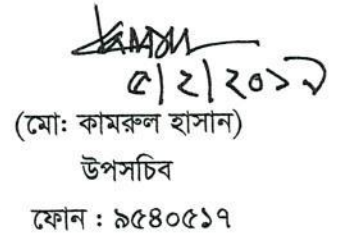 ৫|২|২০১৯
(মো: কামরুল হাসান)
উপসচিব
ফোন : ৯৫৪০৫১৭